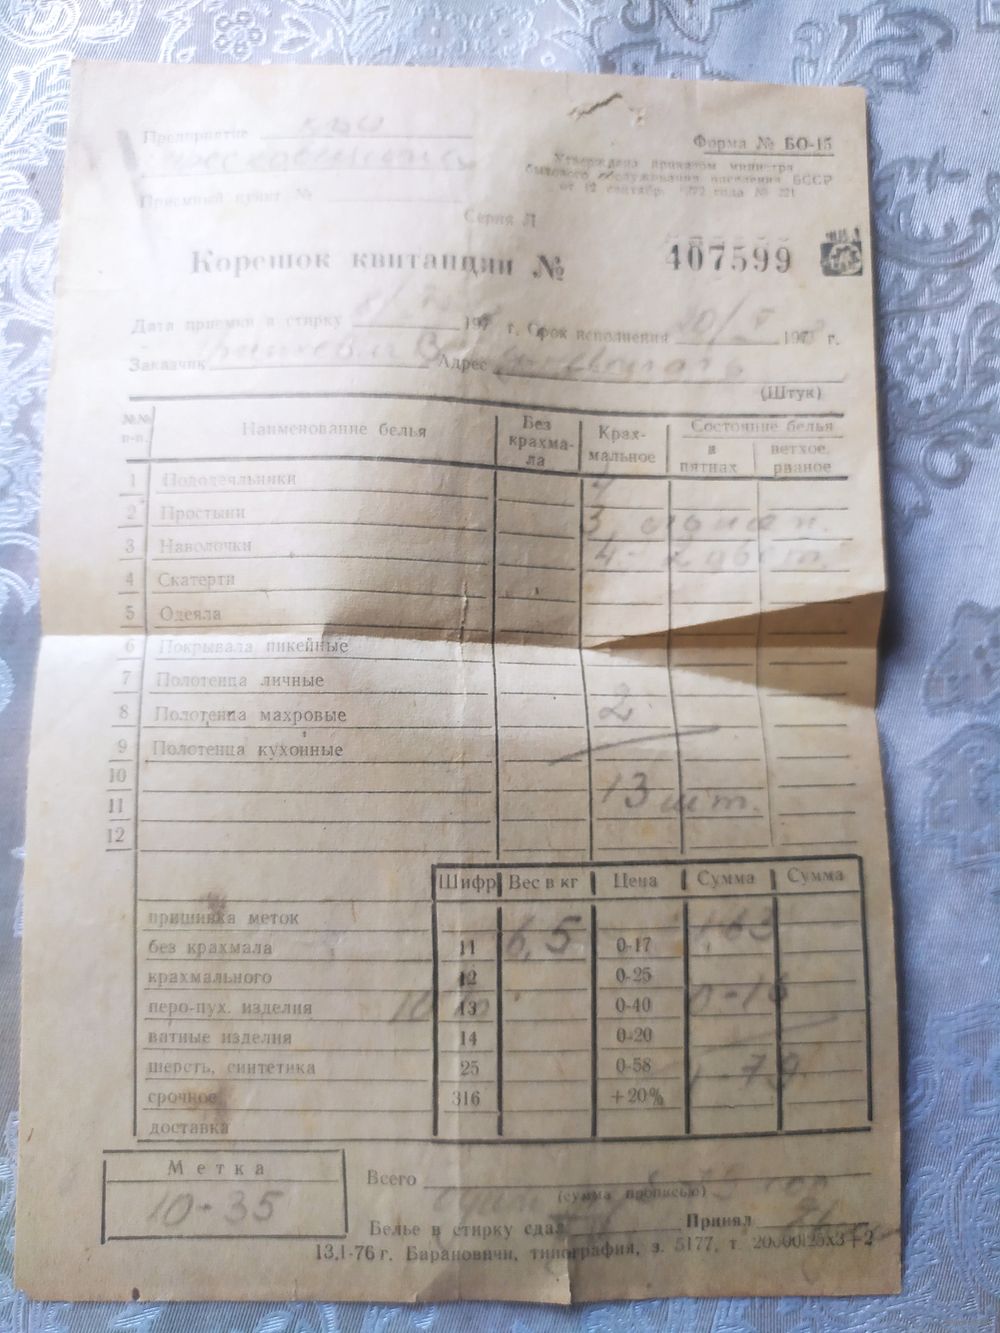 Предприятие КБО
Форма № БО-15
Утверждена приказом министра
бытового обслуживания населения БССР
от 12 сентября 1972 года № 221
Приемный пункт №
Серия Л
Корешок квитанции № 407599
Дата приемки в стирку 197 г. Срок исполнения 20/V 197 г.
Заказчик Адрес
(Штук)
№№ п-п. Наименование белья Без крахма-ла Крах-мальное Состояние белья в пятнах ветхое, рваное
1 Пододеяльники
2 Простыни 3
3 Наволочки 4
4 Скатерти
5 Одеяла
6 Покрывала пикейные
7 Полотенца личные
8 Полотенца махровые 2
9 Полотенца кухонные
10
11 13 шт.
12
Шифр Вес в кг Цена Сумма Сумма
пришивка меток
без крахмала 11 6,5 0-17 1 63
крахмального 12 0-25
перо-пух. изделия 13 0-40 0-16
ватные изделия 14 0-20
шерсть, синтетика 25 0-58 1-79
срочное 316 +20%
доставка
Метка
10-35
Всего
(сумма прописью)
Белье в стирку сдал Принял
13,1-76 г. Барановичи, типография, з. 5177, т. 20000х25х3+2